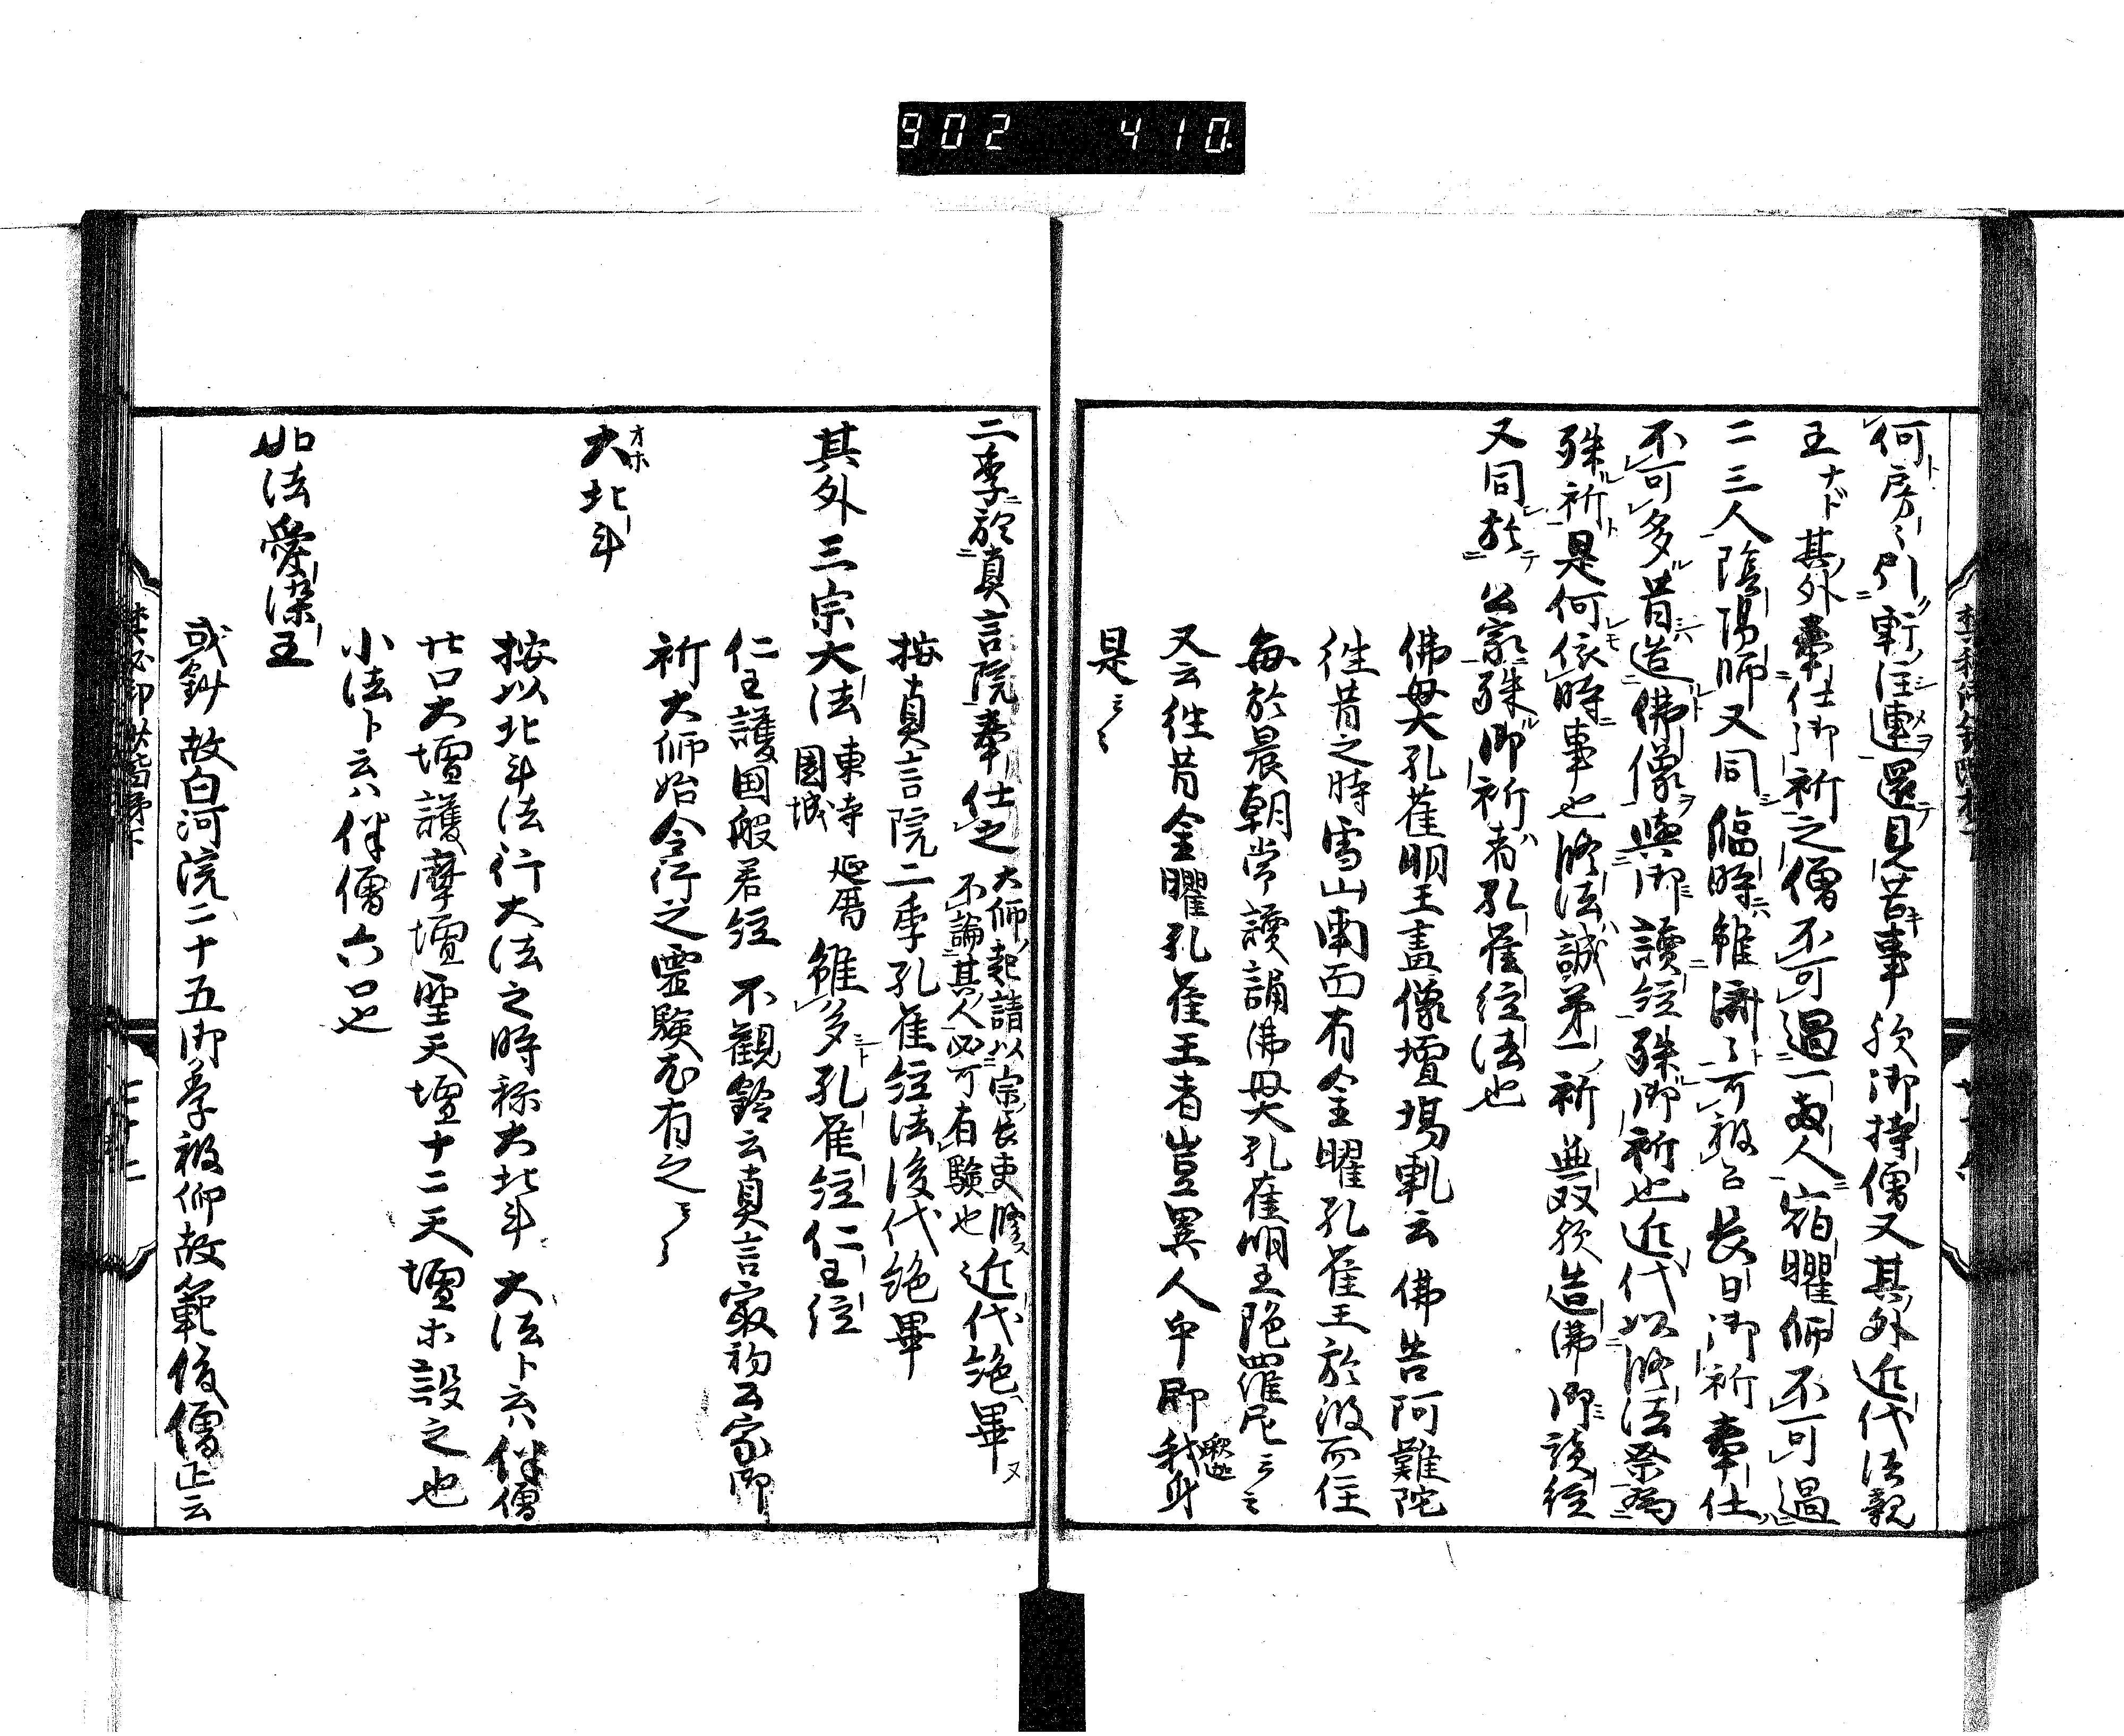 902 410
何房々引軒注連還見苦事欤御持僧又其外近代法親
王ナド其外奉仕御祈之僧不可過一両人宿曜師不可過
二三人陰陽師又同臨時雖済々可被召長日御祈奉仕
不可多昔造佛像與御讀経殊御祈也近代以修法祭為
殊祈是何依時事也修法誠第一祈無双欤造佛御讀経
又同於公家殊御祈者孔雀経法也
佛母大孔雀明王畫像壇場軌云佛告阿難陀
往昔之時雪山南面有金曜孔雀王於彼而住
毎於晨朝常讀誦佛母大孔雀明王陁羅尼云云
又云往昔金曜孔雀王者豈異人乎即我身釈迦
是云々
二季於真言院奉仕之大師起請以宗長吏修
不論其人必可有驗也近代絶畢又
按真言院二季孔雀経法後代絶畢
其外三宗大法東寺延暦
園城雖多孔雀経仁王経
仁王護国般若経不觀鈴云真言家最初公家御
祈大師始令行之霊験尤有之云々
大北斗オホ
按以北斗法行大法之時称大北斗大法ト云八伴僧
廿口大壇護摩壇聖天壇十二天壇ホ設之也
小法ト云八伴僧六口也
如法愛染王
或鈔故白河院二十五御季被仰故範俊僧正云